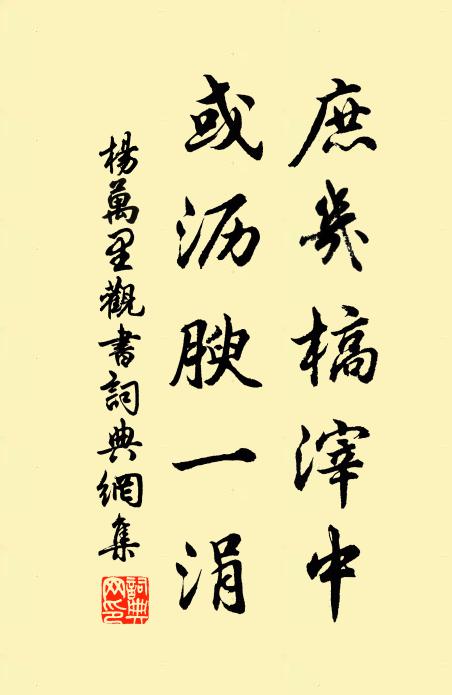 庶幾槁滓中
或沥腴一涓
楊萬里觀書詞典網集
詞典网印